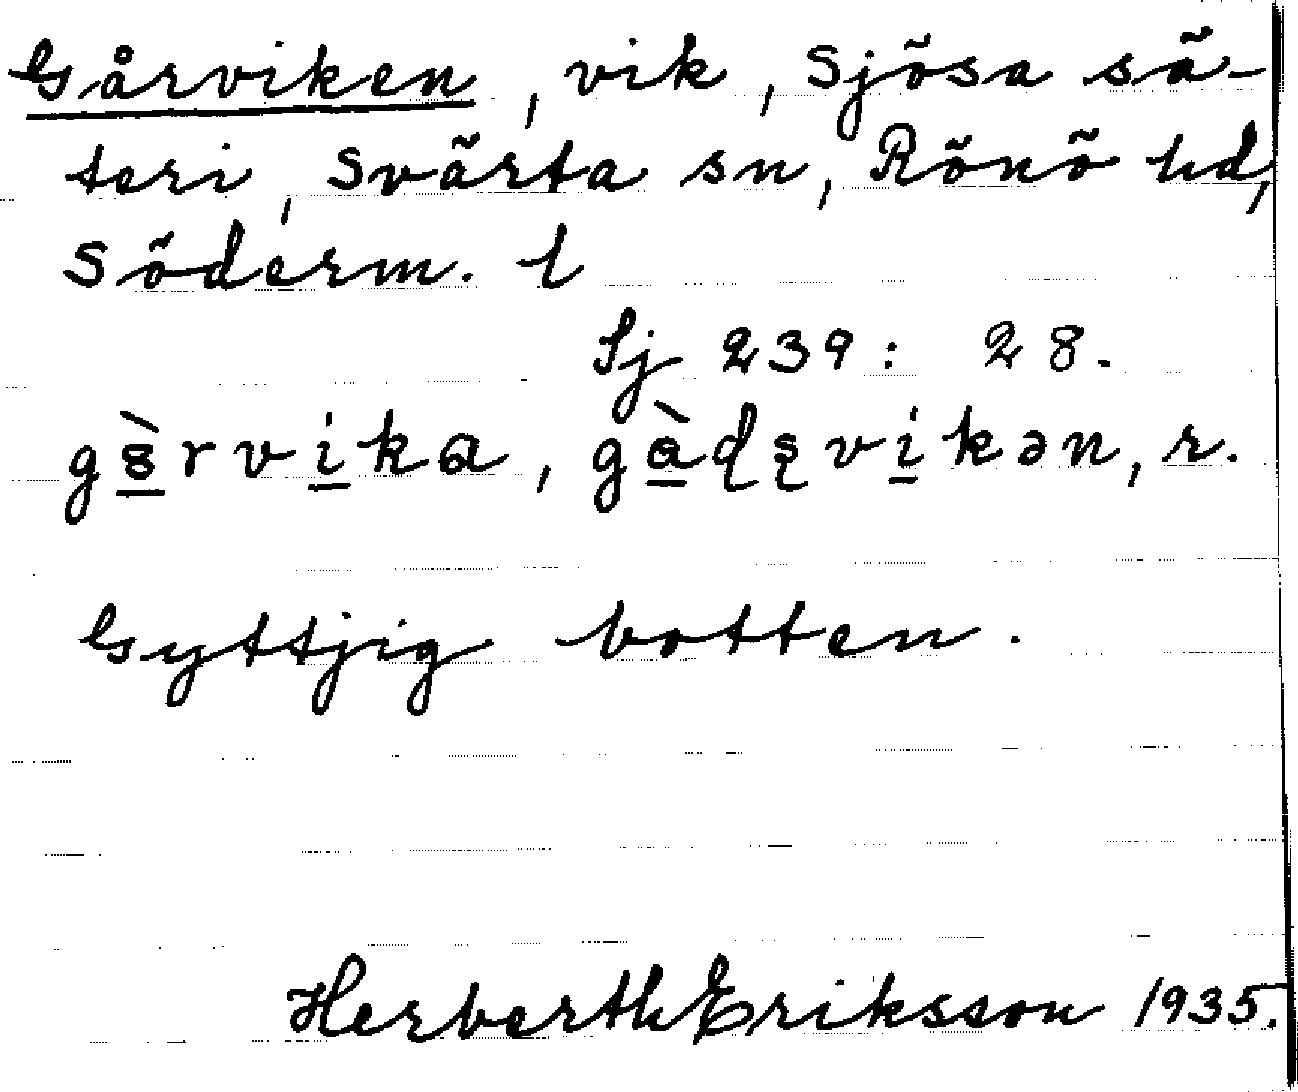 Gårviken, vik, Sjösa sä-
teri, Svärta sn, Rönö hd,
Söderm. l
Sj 239: 28.
gårvika, gådsvikən, r.
Gyttjig botten.
Herberth Eriksson 1935.